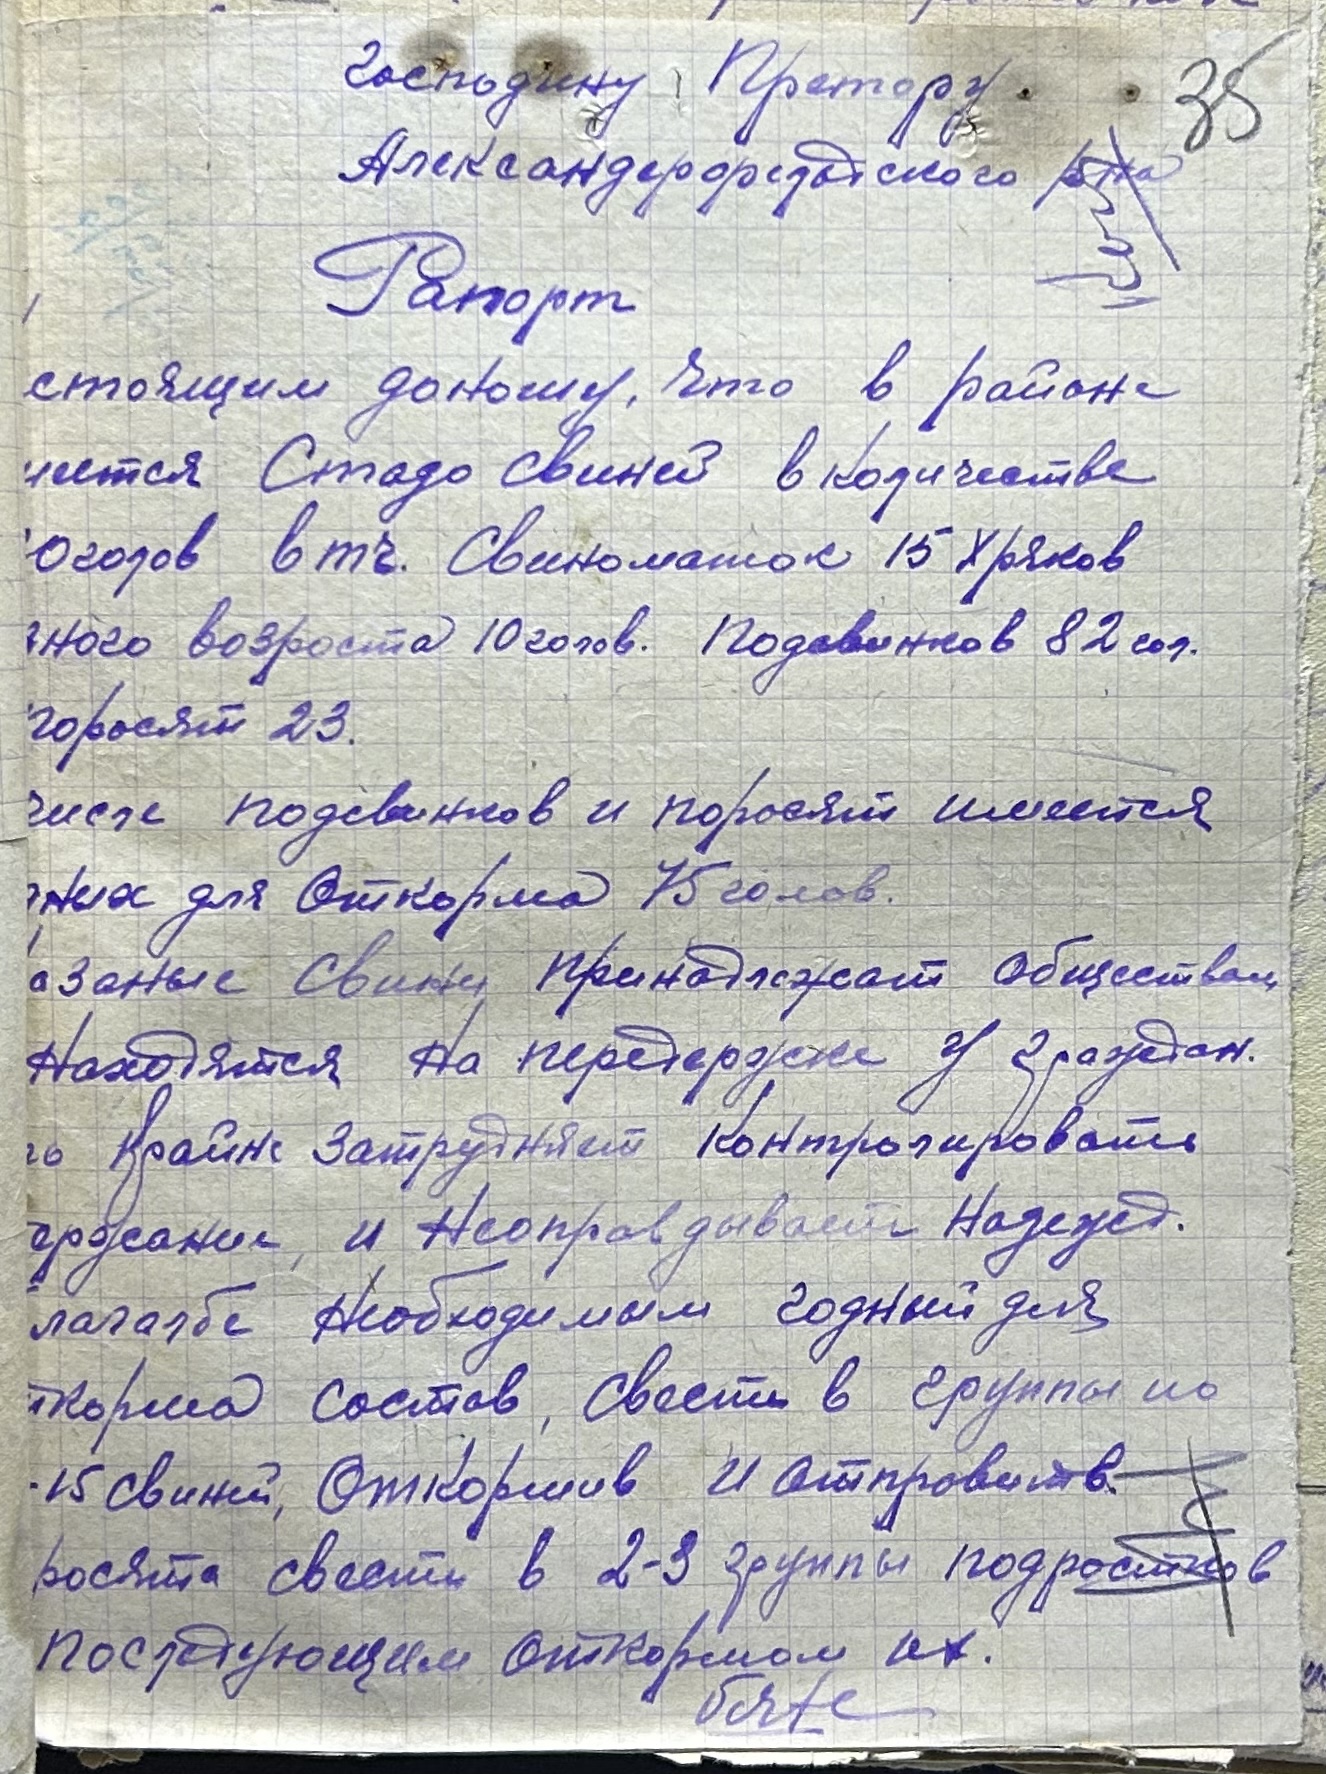 35
Господину Претору
Александерфельдского р-на
Рапорт
стоящим доношу, что в районе
меется Стадо Свиней в количестве
0 голов в т.ч. Свиноматок 15 Хряков
зного возроста 10 голов. Подсвинков 82 гол.
поросят 23.
числе подсвинков и поросят имеется
дных для Откорма 75 голов.
азаные Свиньи принадлежат обществам
находятся на передержке у граждан.
то крайне затрудняет контролировать
ержание, и неоправдывает надежд.
лагалбе необходимым годный для
ткорма состав, свести в группы по
-15 свиней, Откормив и отправив.
росята свести в 2-3 группы подростков
последующим откормом их.